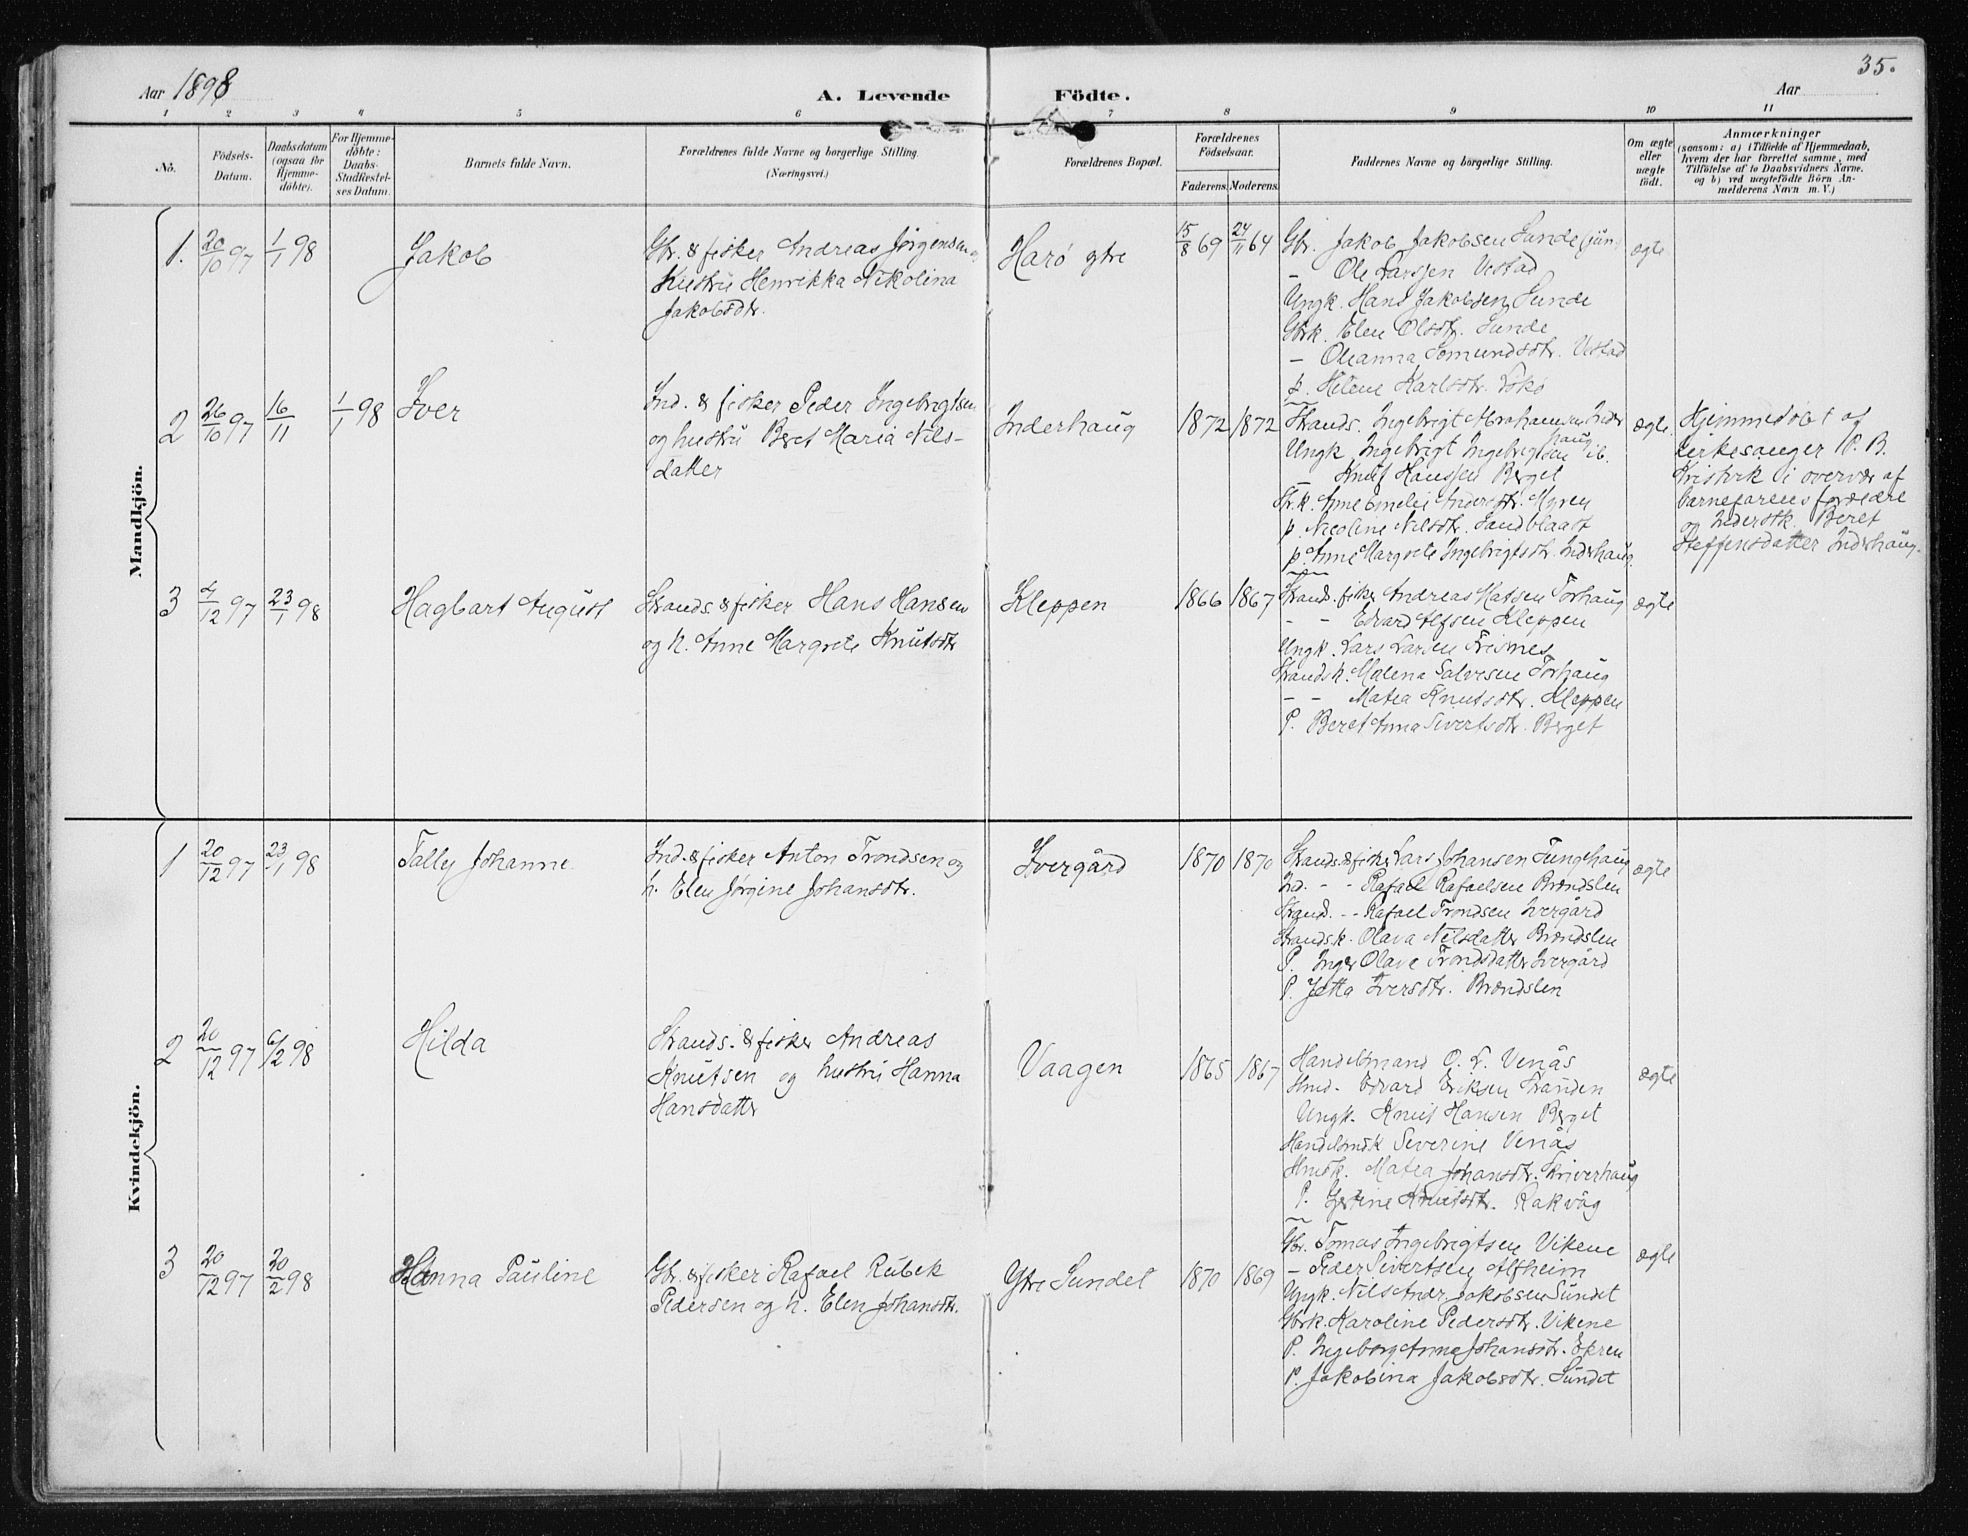 35.
Aar 1898
A. Levende Födte.
Aar
1 2 3 4 5 6 7 8 9 10 11
No.
Födsels-Datum.
Daabsdatum (ogsaa for Hjemme-döbte).
For Hjemme-döbte: Daabs-Stadfæstel-ses Datum.
Barnets fulde Navn.
Forældrenes fulde Navne og borgerlige Stilling.
(Næringsvei.)
Forældrenes Bopæl.
Forældrenes Födselsaar.
Faderens. Moderens.
Faddernes Navne og borgerlige Stilling.
Om ægte eller uægte födt.
Anmærkninger
(saasom: a) i Tilfælde af Hjemmedaab,
hvem der har forrettet samme, med
Tilföielse af to Daabsvidners Navne.
og b) ved uægtefödte Börn An-
melderens Navn m. V.)
Mandkjön.
1. 20/10 97 1/1 98 Jakob
Gbr. & fisker Andreas Jørgensen og
hustru Henrikka Nikolina
Jakobsdtr.
Harø ytre
15/8 69 24/11 64
Gbr. Jakob Jakobsen Sunde (jun)
- Ole Larssen Vestad
Ungk. Hans Jakobsen Sunde
Gbrk. Elen Olsdtr. Sunde
- Oleanna Tomundsdtr. Vestad
p. Helene Karlsdtr.
ægte
2 26/10 97 16/11 1/1 98 Iver
Ind. & fisker Peder Ingebrigtsen
og hustru Beret Maria Nils-
datter
Inderhaug
1872 1872
Strands. Ingebrigt Abrahamsen Inder
haug
Ungk. Ingebrigt Ingebrigtsen ib.
- Knut Hanssen Berget
Str.k. Anne Emelie Andersdtr. Myren
p. Nicoline Nilsdtr. Sandblaast
p. Anne Margrete Ingebrigtsdtr. Inderhaug
ægte.
Hjemmedøbt af
kirkesanger P. B.
Kristvik i overvær af
barnefarens forældre
og Inderstk. Beret
Steffensdatter Inderhaug.
3 4/12 97 23/1 98 Hagbart August
Strands. & fisker Hans Hansen
og h. Anne Margrete Knutsdtr
Kleppen
1866 1867
Strands. fisker Andreas Matsen Torhaug
- - Edvard Alfsen Kleppen
Ungk. Lars Larsen Trisnes
Strandsk. Malena Salvesen Torhaug
- - Matea Knutsdtr. Kleppen
P. Beret Anna Sivertsdtr. Berget
ægte
Kvindekjön.
1 20/12 97 23/1 98 Tally Johanne
Ind. & fisker Anton Trondsen og
h. Elen Jørgine Johansdtr.
Ivergård
1870 1870
Strands. & fisker Lars Johansen Tungehaug
Ind. - - Rafael Rafaelsen Brændslen
Strand. - - Rafael Trondsen Ivergård
Strandsk. Olava Nilsdatter Brændslen
P. Inger Olave Trondsdatter Ivergård
P. Jetta Iversdtr. Brændslen
ægte
2 20/12 97 6/2 98 Hilda
Strands. & fisker Andreas
Knutsen og hustru Hanna
Hansdatter
Vaagen
1865 1867
Handelsmand O. T. Venås
Hmd. Edvard Eriksen Stranden
Ungk. Knut Hansen Berget
Handelsmdk Severine Venås
Hmdk. Matea Johansdtr. Skriverhaug
P. Gjertine Knutsdtr. Rakvåg
ægte
3 20/12 97 20/2 98 Hanna Pauline
Gbr. & fisker Rafael Rubek
Pedersen og h. Elen Johansdtr.
Ytre Sundet
1870 1869
Gbr. Tomas Ingebrigtsen Vikene
- Peder Sivertsen Alfheim
Ungk. Nils Andr. Jakobsen Sundet
Gbrk. Karoline Pedersdtr. Vikene
P. Ingeborg Anna Johansdtr. Ekren
P. Jakobina Jakobsdtr. Sundet
ægte